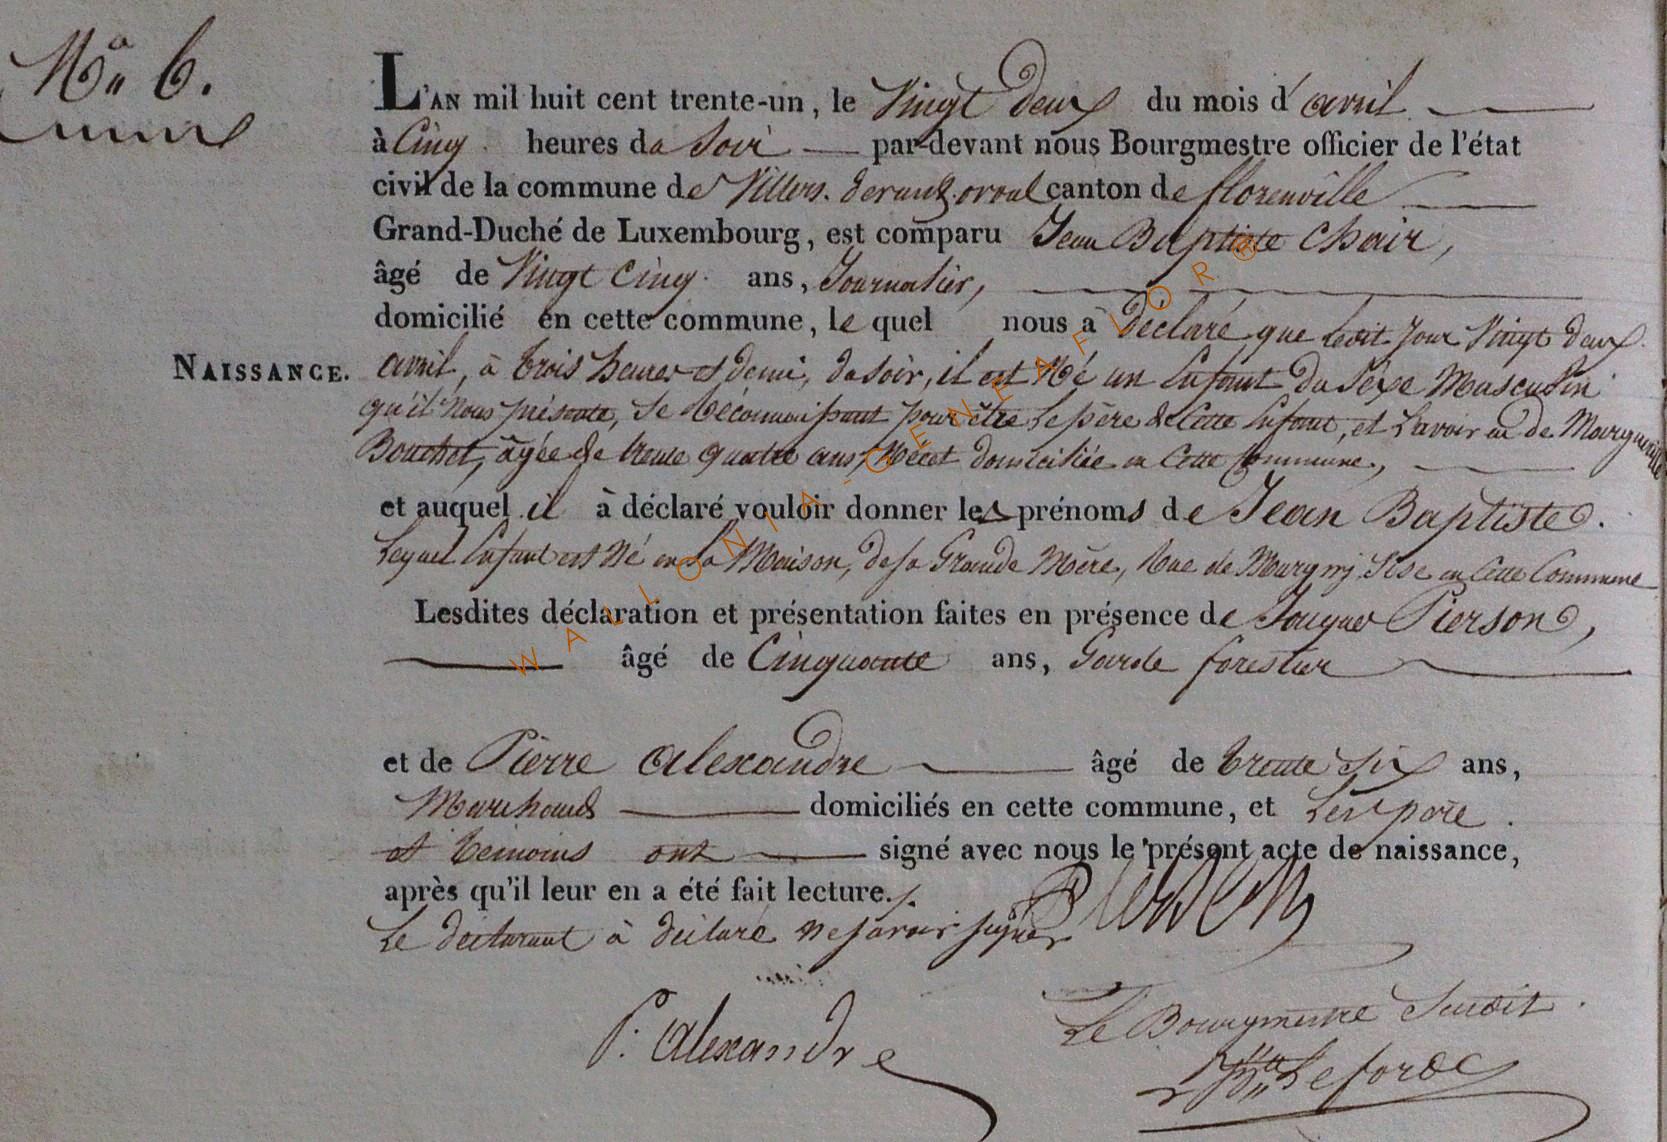 No 6.
L'AN mil huit cent trente-un, le Vingt deux du mois d'avril
à Cinq heures du Soir par-devant nous Bourgmestre officier de l'état
civil de la commune de Villers-devant-orval canton de florenville
Grand-Duché de Luxembourg, est comparu Jean Baptiste Choir,
âgé de Vingt Cinq ans, Journalier,
domicilié en cette commune, le quel nous a Déclaré que ledit Jour Vingt deux
NAISSANCE. avril, à trois heures et demi, du soir, il est Né un Enfant du Séxe Masculin
qu'il Nous présente, Se Réconnaissant pour être le père de Cette Enfant, et l'avoir eu de Marguerite
Bouchot, âgée de trente quatre ans, domiciliée en Cette Commune,
et auquel il à déclaré vouloir donner les prénoms de Jean Baptiste.
Lequel Enfant est Né en la Maison, de sa Grande Mère, Rue de Margny Sise en Cette Commune
Lesdites déclaration et présentation faites en présence de Pierson,
âgé de Cinquante ans, Garde forestier
et de Pierre alexandre âgé de trente Six ans,
Marchand domiciliés en cette commune, et Les père
et témoins ont signé avec nous le présent acte de naissance,
après qu'il leur en a été fait lecture.
Le déclarant à déclaré Ne savoir signer
Pierson
P. alexandre
Le Bourgmestre Susdit